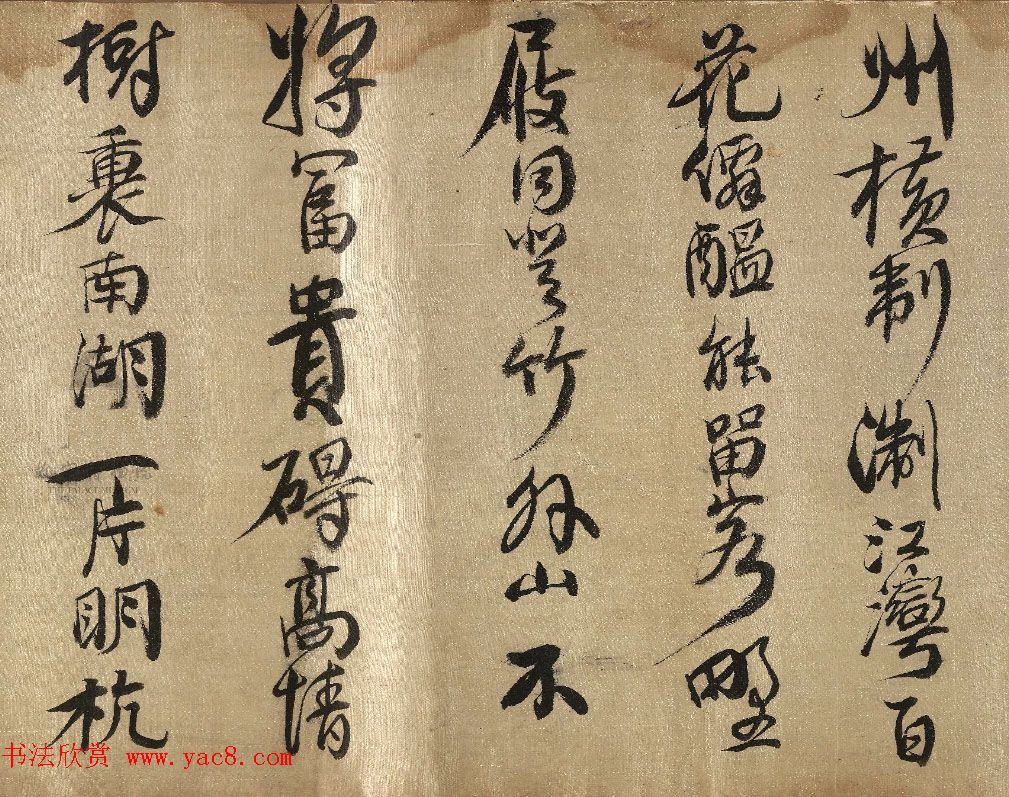 州橫制淛江灣百
花僊醖能留客野
屐同登竹外山不
將冨貴碍高情
樹裹南湖一片明杭
书法欣赏 www.yac8.com